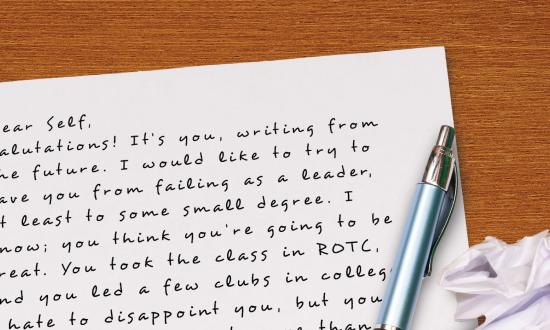 ear Self,
alutations! It's you, writing from
he future. I would like to try to
ave you from failing as a leader,
t least to some small degree. I
now; you think you're going to be
reat. You took the class in ROTC,
nd you led a few clubs in colleg
hate to disappoint you, but you
than